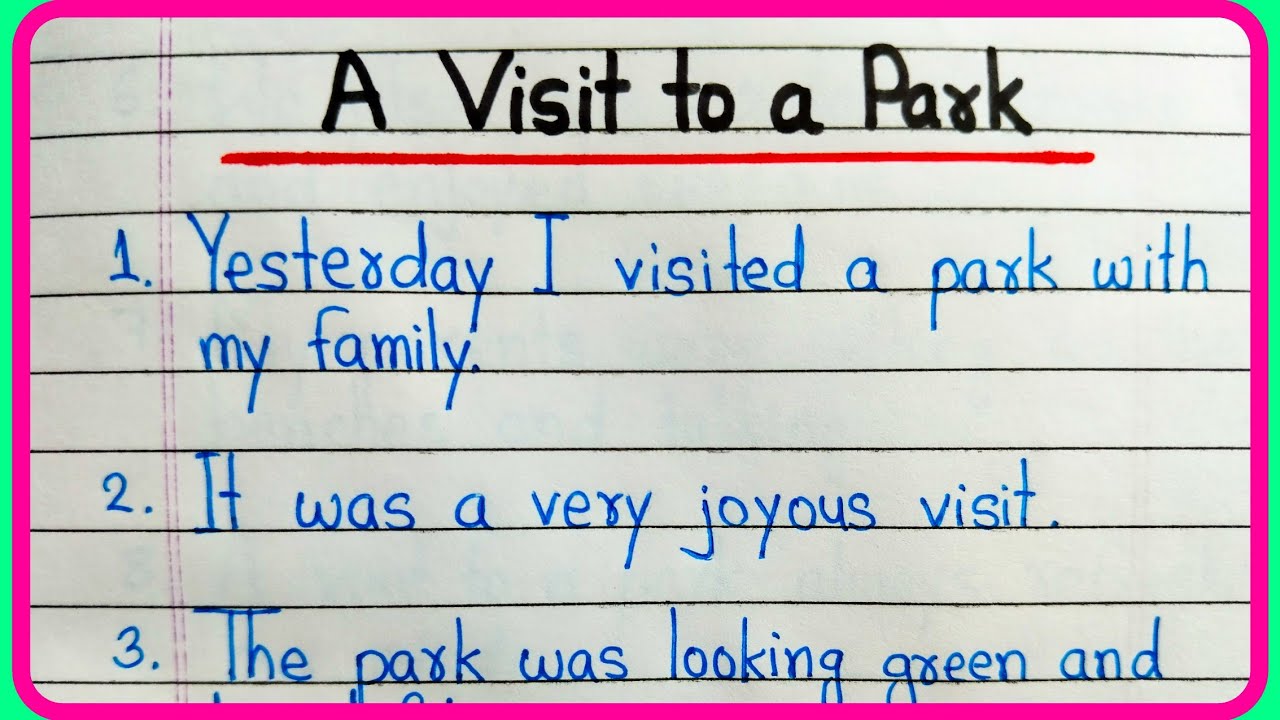 A Visit to a Park
1. Yesterday I visited a park with
my family.
2. It was a very joyous visit.
3. The park was looking green and